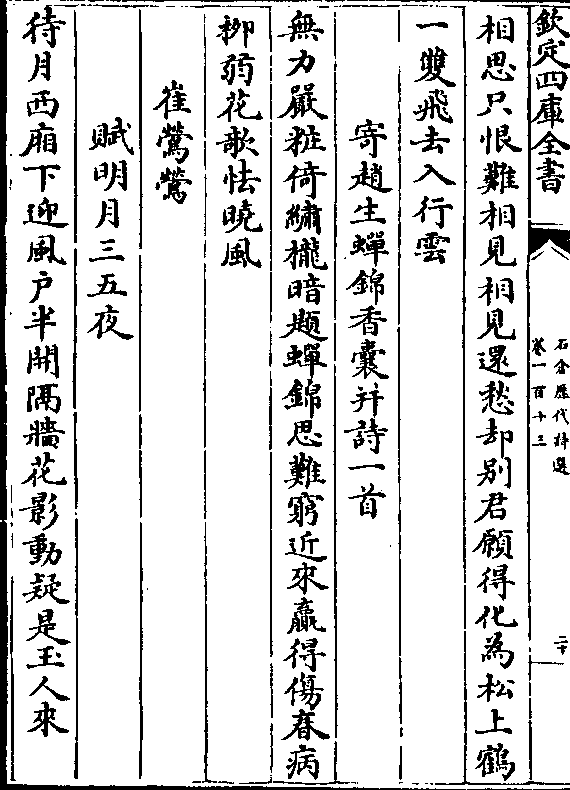 欽定四庫全書
石倉歷代詩選
卷一百十三
二十
相思只恨難相見相見還愁却别君願得化為松上鶴
一雙飛去入行雲
寄趙生蟬錦香囊并詩一首
無力嚴粧倚繡櫳暗題蟬錦思難窮近來羸得傷春病
柳弱花欹怯曉風
崔鶯鶯
賦明月三五夜
待月西廂下迎風户半開隔牆花影動疑是玉人來